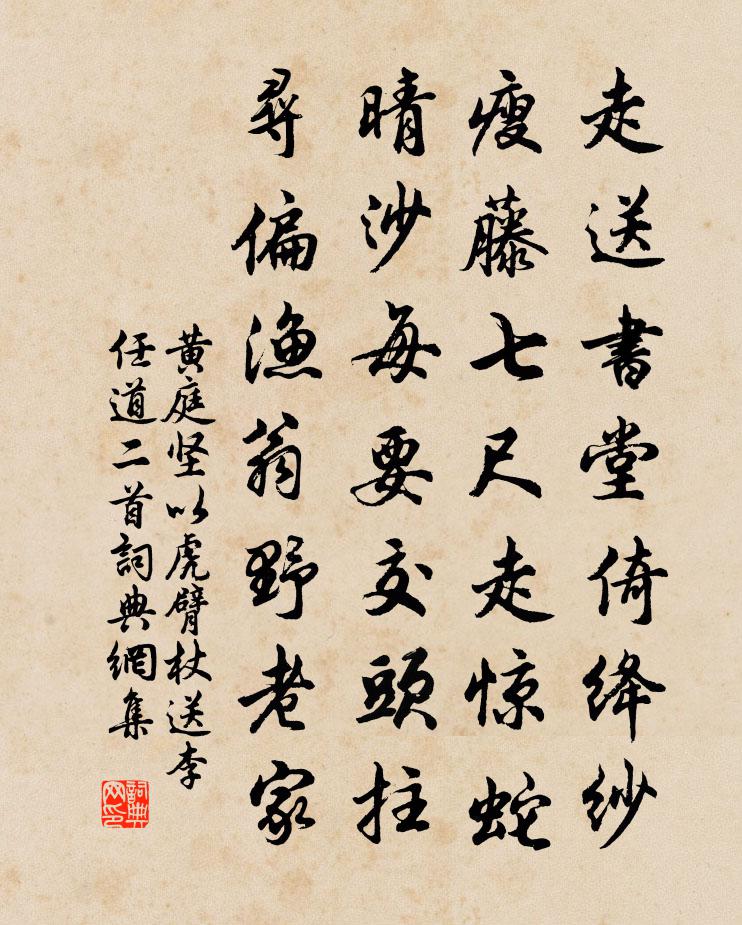 走送書堂倚絳紗
瘦藤七尺走惊蛇
晴沙每要交頭拄
尋偏漁翁野老家
黄庭坚以虎臂杖送李
任道二首詞典網集
詞典网印